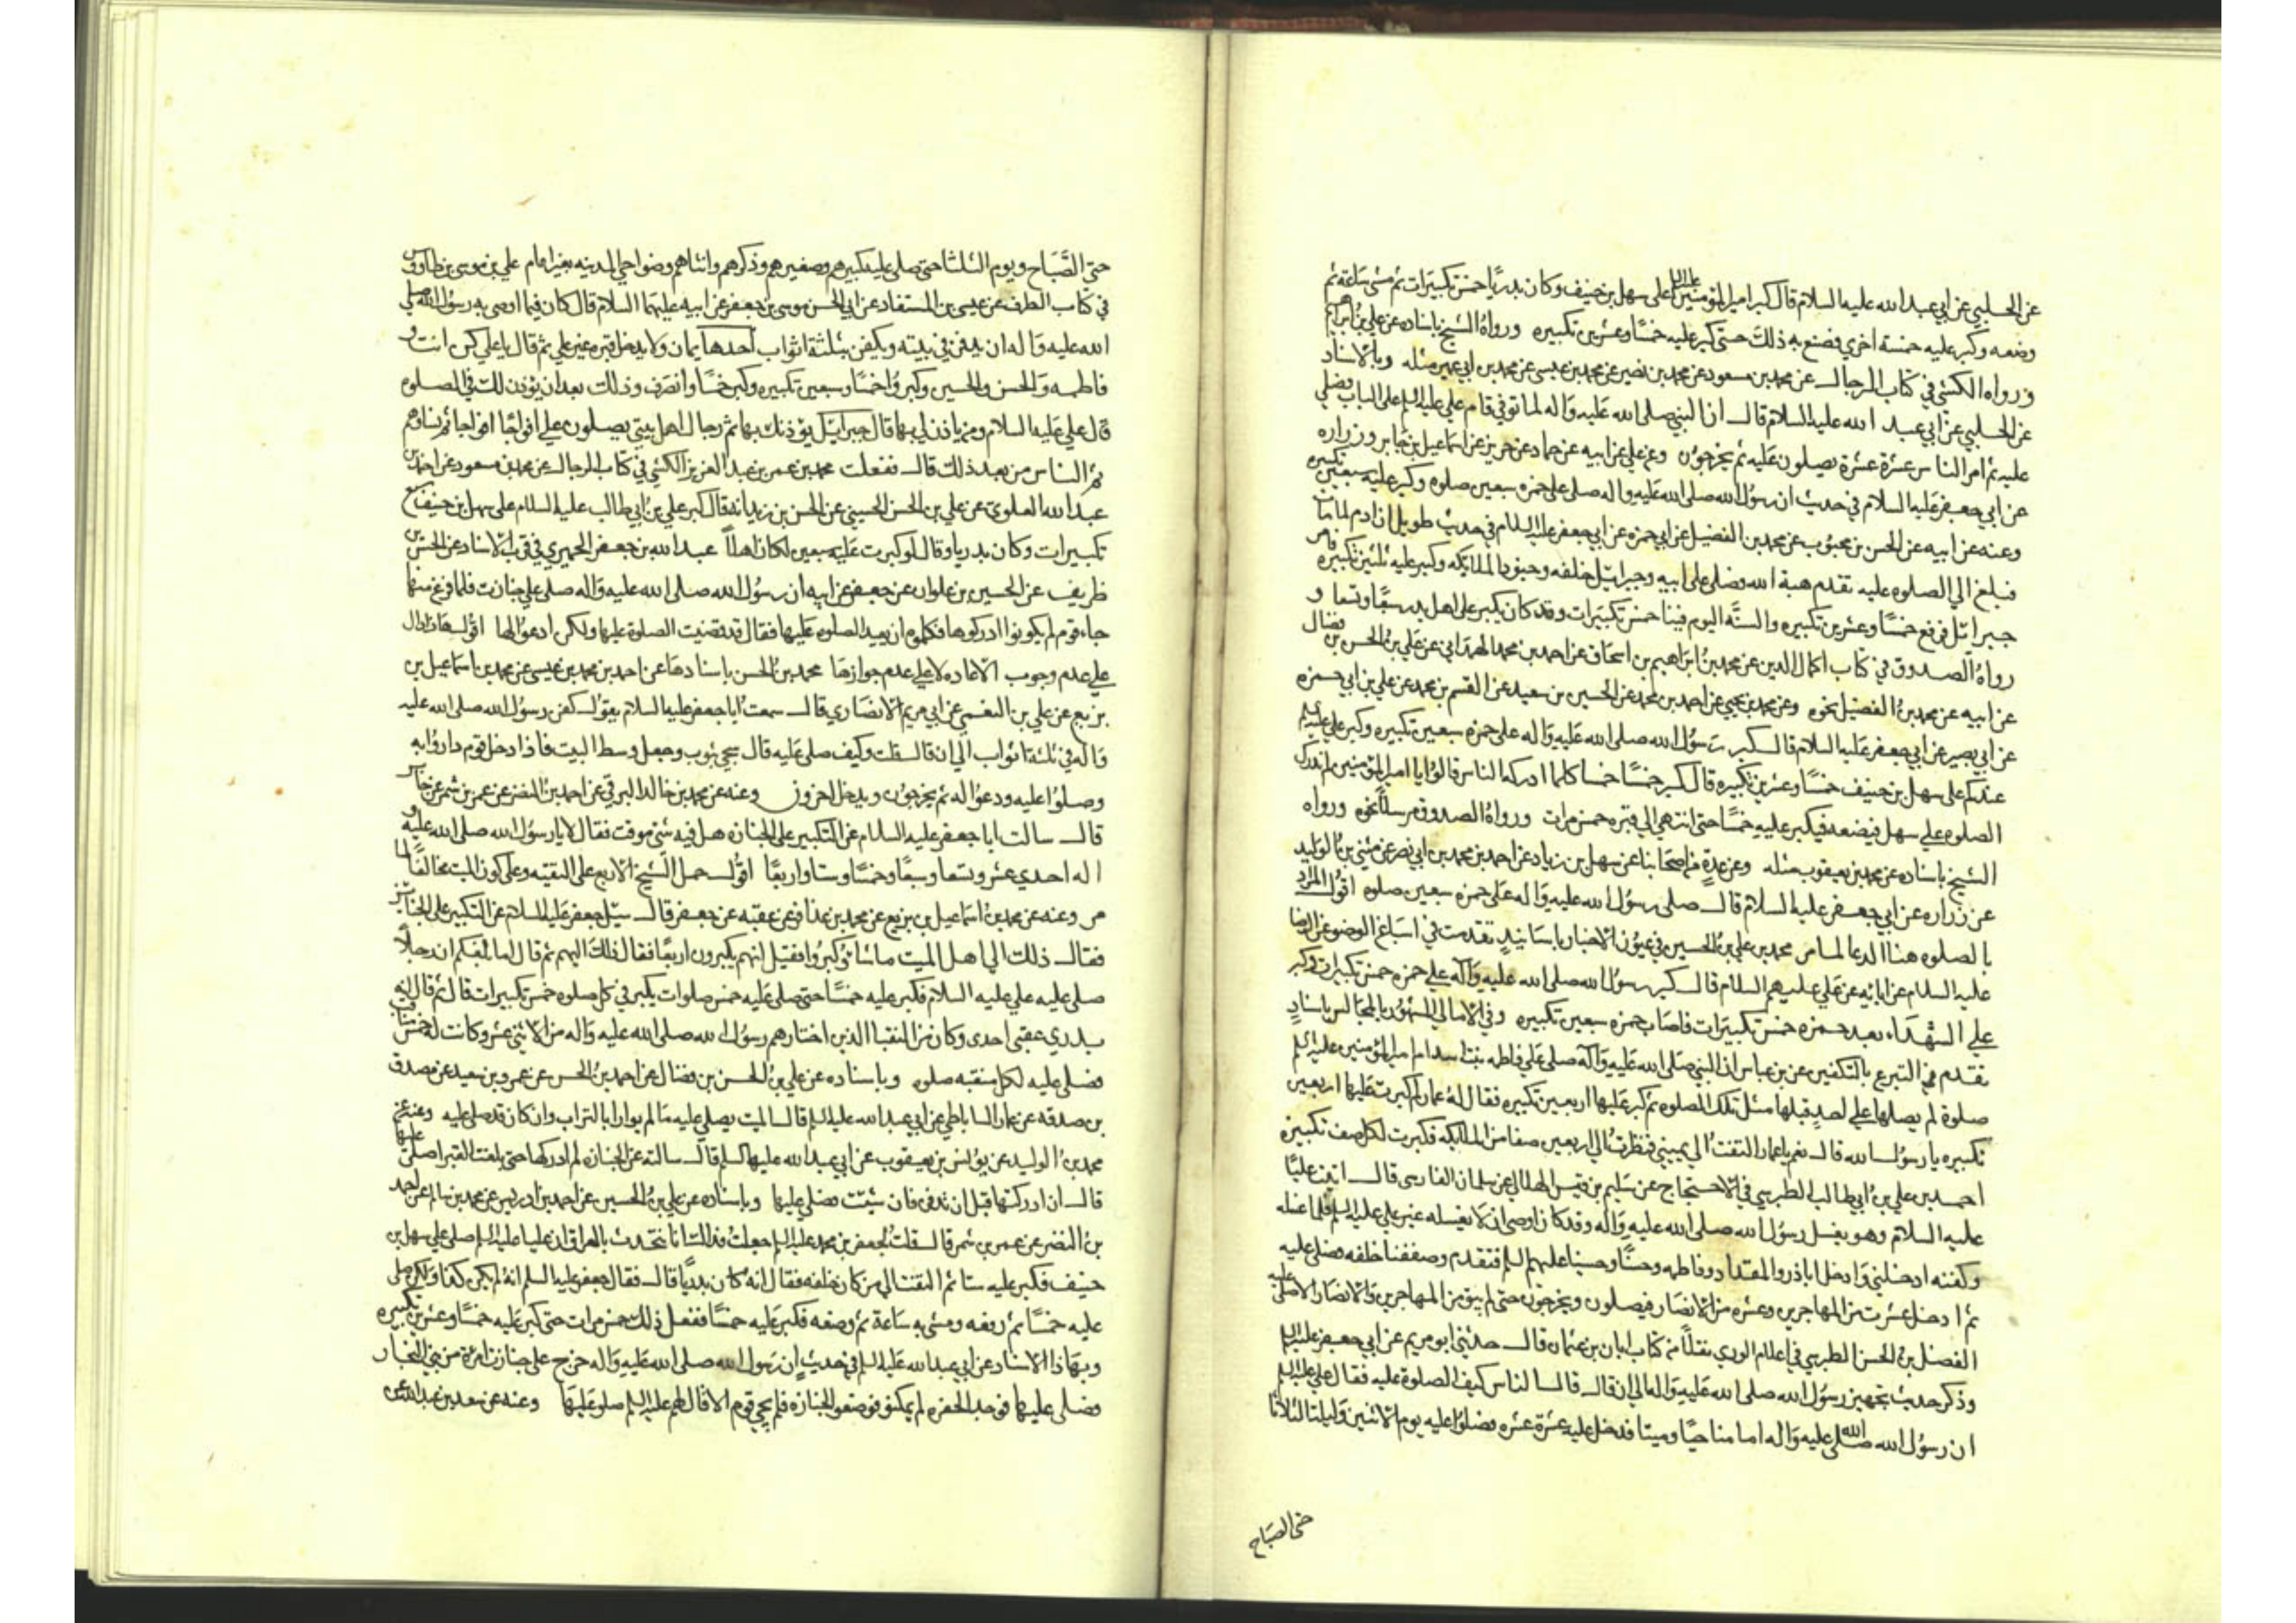 عن الحلبي عن ابي عبد الله عليه السلام قال كبر امير المؤمنين عليه السلام على سهل بن حنيف وكان بدريا خمس تكبيرات ثم مشى ساعة ثم
وضعه وكبر عليه خمسة اخري فصنع به ذلك حتى كبر عليه خمسا وعشرين تكبيره ورواه الشيخ باسناده عن علي بن ابراهيم
ورواه الكشي في كتاب الرجال عن محمد بن مسعود عن محمد بن نصير عن محمد بن عيسى عن محمد بن ابي عمير مثله وبالاسناد
عن الحلبي عن ابي عبد الله عليه السلام قال ان النبي صلى الله عليه واله لما توفي قام علي عليه السلم على الباب فصلي
عليه ثم امر الناس عشرة عشرة يصلون عليه ثم يخرجون وعن علي عن ابيه عن حماد عن حريز عن اسماعيل بن جابر وزراره
عن ابي جعفر عليه السلام في حديث ان رسول الله صلى الله عليه واله صلى على حمزه سبعين صلوه وكبر عليه سبعين تكبيره
وعنه عن ابيه عن الحسن بن محبوب عن محمد بن الفضيل عن ابي حمزه عن ابي جعفر عليه السلام في حديث طويل ان ادم لما مات
فبلغ الي الصلوه عليه تقدم هبة الله فصلى على ابيه وجبرائيل خلفه وجنود الملايكه وكبر عليه ثلثين تكبيره فامر
جبرائيل فرفع خمسا وعشرين تكبيره والسنة اليوم فينا خمس تكبيرات وقد كان يكبر على اهل بدر سبعا وتسعا و
رواه الصدوق في كتاب اكمال الدين عن محمد بن ابراهيم بن اسحاق عن احمد بن محمد الهمداني عن علي بن الحسن بن فضال
عن ابيه عن محمد بن الفضيل نحوه وعن محمد بن يحيي عن احمد بن محمد عن الحسين بن سعيد عن القسم بن محمد عن علي بن ابي حمزه
عن ابي بصير عن ابي جعفر عليه السلام قال كبر رسول الله صلى الله عليه واله على حمزه سبعين تكبيره وكبر علي عليه السلم
عندكم على سهل بن حنيف خمسا وعشرين تكبيره قال كبر خمسا خمسا كلما ادركه الناس قالوا يا امير المؤمنين لم ندرك
الصلوه علي سهل فيضعه فيكبر عليه خمسا حتى انتهي الي قبره خمس مرات ورواه الصدوق مرسلا نحوه ورواه
الشيخ باسناده عن محمد بن يعقوب مثله وعن عدة من اصحابنا عن سهل بن زياد عن احمد بن محمد بن ابي نصر عن مثني بن الوليد
عن زراره عن ابي جعفر عليه السلام قال صلى رسول الله عليه واله على حمزه سبعين صلوه اقول المراد
بالصلوه هنا الدعا لما مر محمد بن علي بن الحسين في عيون الاخبار باسانيد تقدمت في اسباغ الوضوء عن الرضا
عليه السلام عن ابائه عن علي عليهم السلام قال كبر رسول الله صلى الله عليه واله علي حمزه خمس تكبيرات وكبر
علي الشهداء بعد حمزه خمس تكبيرات فاصاب حمزه سبعين تكبيره وفي الامالي المشهور بالمجالس باسناد
تقدم في التبرع بالتكفين عن بن عباس ان النبي صلى الله عليه واله صلى علي فاطمه بنت اسد ام امير المؤمنين عليه السلم
صلوة لم يصلها علي احد قبلها مثل تلك الصلوه ثم كبر عليها اربعين تكبيره فقال له عمار لم كبرت عليها اربعين
تكبيره يا رسول الله قال نعم يا عمار التفت الي يميني فنظرت الي اربعين صفا من الملايكه فكبرت لكل صف تكبيره
احمد بن علي بن ابي طالب الطبرسي في الاحتجاج عن سليم بن قيس الهلالي عن سلمان الفارسى قال اتيت عليا
عليه السلام وهو يغسل رسول الله صلى الله عليه واله وقد كان اوصى ان لا يغسله غير علي عليه السلم فلما غسله
وكفنه ادخلني وادخل اباذر والمقداد وفاطمه وحسنا وحسينا عليهم السلم فتقدم وصففنا خلفه فصلى عليه
ثم ادخل عشرة من المهاجرين وعشره من الانصار فيصلون ويخرجون حتى لم يبق من المهاجرين والانصار الا صلى عليه
الفضل بن الحسن الطبرسي في اعلام الوري نقلا من كتاب ابان بن عثمان قال حدثني ابو مريم عن ابي جعفر عليه السلم
وذكر حديث تجهيز رسول الله صلى الله عليه واله الي ان قال قال الناس كيف الصلوة عليه فقال علي عليه السلم
ان رسول الله صلى الله عليه واله امامنا حيا وميتا فدخل عليه عشرة عشره فصلوا عليه يوم الاثنين وليلة الثلاثا
حتى الصباح
حتى الصباح ويوم الثلثا حتى صلى عليه كبيرهم وصغيرهم وذكرهم وانثاهم وضواحي المدينه بغير امام علي بن موسى بن طاووس
في كتاب الطرف عن عيسى بن المستفاد عن ابي الحسن موسى بن جعفر عن ابيه عليهما السلام قال كان فيما اوصى به رسول الله صلى
الله عليه واله ان يدفن في بيته ويكفن بثلثة اثواب احدها يمان ولا يدخل قبره غير علي ثم قال يا علي كن انت و
فاطمه والحسن والحسين وكبروا خمسا وسبعين تكبيره وكبر خمسا وانصرف وذلك بعد ان يؤذن لك في الصلوه
قال علي عليه السلام ومن ياذن لي بها قال جبرائيل يؤذنك بها ثم رجال اهل بيتي يصلون علي افواجا افواجا ثم نساؤهم
ثم الناس من بعد ذلك قال ففعلت محمد بن عمر بن عبد العزيز الكشي في كتاب الرجال عن محمد بن مسعود عن احمد بن
عبد الله العلوي عن علي بن الحسن الحسيني عن الحسن بن زيد انه قال كبر علي بن ابي طالب عليه السلام على سهل بن حنيف سبع
تكبيرات وكان بدريا وقال لو كبرت عليه سبعين لكان اهلا عبد الله بن جعفر الحميري في قرب الاسناد عن الحسن بن
ظريف عن الحسين بن علوان عن جعفر عن ابيه ان رسول الله صلى الله عليه واله صلى علي جنازة فلما فرغ منها
جاء قوم لم يكونوا ادركوها فكلموه ان يعيد الصلوه عليها فقال قد قضيت الصلوة عليها ولكن ادعوا لها اقول هذا دال
علي عدم وجوب الاعاده لا علي عدم جوازها محمد بن الحسن باسناده عن احمد بن محمد بن عيسى عن محمد بن اسماعيل بن
بزيع عن علي بن النعمن عن ابي مريم الانصاري قال سمعت ابا جعفر عليه السلام يقول كفن رسول الله صلى الله عليه
واله في ثلثة اثواب الي ان قال قلت وكيف صلى عليه قال سجي بثوب وجعل وسط البيت فاذا دخل قوم داروا به
وصلوا عليه ودعوا له ثم يخرجون ويدخل اخرون وعنه عن محمد بن خالد البرقي عن احمد بن النضر عن عمر بن شمر عن جابر
قال سالت ابا جعفر عليه السلام عن التكبير على الجنازه هل فيه شئ موقت فقال لا يا رسول الله صلى الله عليه و
اله احدي عشر وتسعا وسبعا وخمسا وستا واربعا اقول حمل الشيخ الاربع على التقيه وعلى كون الميت مخالفا لما
مر وعنه عن محمد بن اسماعيل بن بزيع عن محمد بن عذافر عن عقبه عن جعفر قال سئل جعفر عليه السلام عن التكبير على الجنايز
فقال ذلك الي اهل الميت ماشاؤا كبروا فقيل انهم يكبرون اربعا فقال ذلك اليهم ثم قال اما بلغكم ان رجلا
صلى عليه علي عليه السلام فكبر عليه خمسا حتى صلى عليه خمس صلوات يكبر في كل صلوه خمس تكبيرات قال ثم قال انه
بدري عقبى احدى وكان من النقبا الذين اختارهم رسول الله صلى الله عليه واله من الاثنى عشر وكانت له خمس مناقب
فصلى عليه لكل منقبه صلوه وباسناده عن علي بن الحسن بن فضال عن احمد بن الحسن عن عمرو بن سعيد عن مصدق
بن صدقه عن عمار الساباطي عن ابي عبد الله عليه السلم قال الميت يصلي عليه ما لم يوارا بالتراب وان كان قد صلي عليه وعنه عن
محمد بن الوليد عن يونس بن يعقوب عن ابي عبد الله عليه السلم قال سالته عن الجنازه لم ادركها حتى بلغت القبر اصلي عليها
قال ان ادركتها قبل ان تدفن فان شئت فصلي عليها وباسناده عن علي بن الحسين عن احمد بن ادريس عن محمد بن سالم عن احمد
بن النضر عن عمر بن شمر قال قلت لجعفر بن محمد عليه السلم جعلت فداك انا نتحدث بالعراق ان عليا عليه السلم صلى علي سهل بن
حنيف فكبر عليه ستا ثم التفت الي من كان خلفه فقال انه كان بدريا قال فقال جعفر عليه السلم انه لم يكن كذا ولكن صلى
عليه خمسا ثم رفعه ومشى به ساعة ثم وضعه فكبر عليه خمسا ففعل ذلك خمس مرات حتى كبر عليه خمسا وعشرين تكبيره
وبهاذا الاسناد عن ابي عبد الله عليه السلم في حديث ان رسول الله صلى الله عليه واله خرج على جنازة امراة من بني النجار
فصلى عليها فوجد الحفره لم يمكنو فوضعو الجنازه فلم يجي قوم الا قال لهم عليه السلم صلو عليها وعنه عن سعد بن عبد الله عن